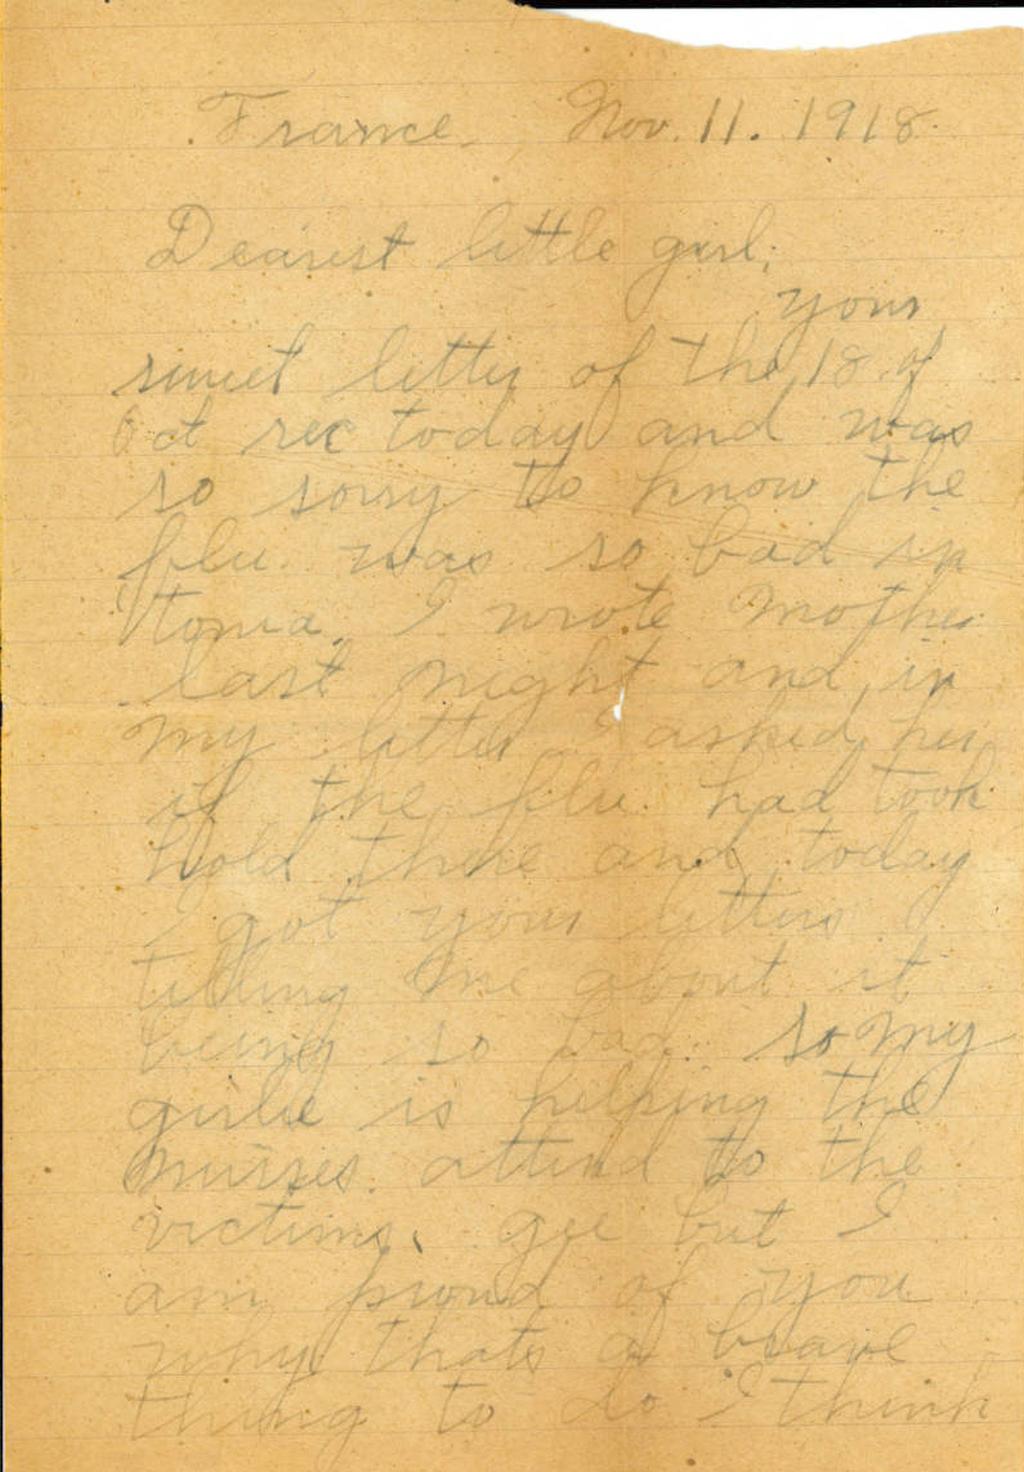 France. Nov. 11. 1918.
Dearest little girl;
your
sweet letter of the 18 of
Oct rec today and was
so sorry to know the
flu. was so bad in
Itonia. I wrote Mother
last night and in
my letter I asked her
if the flu had took
hold there and today
I got your letters
telling me about it
being so bad. so my
girlie is helping the
nurses. attend to the
victims. gee but I
am proud of you
why thats a brave
thing to do I think